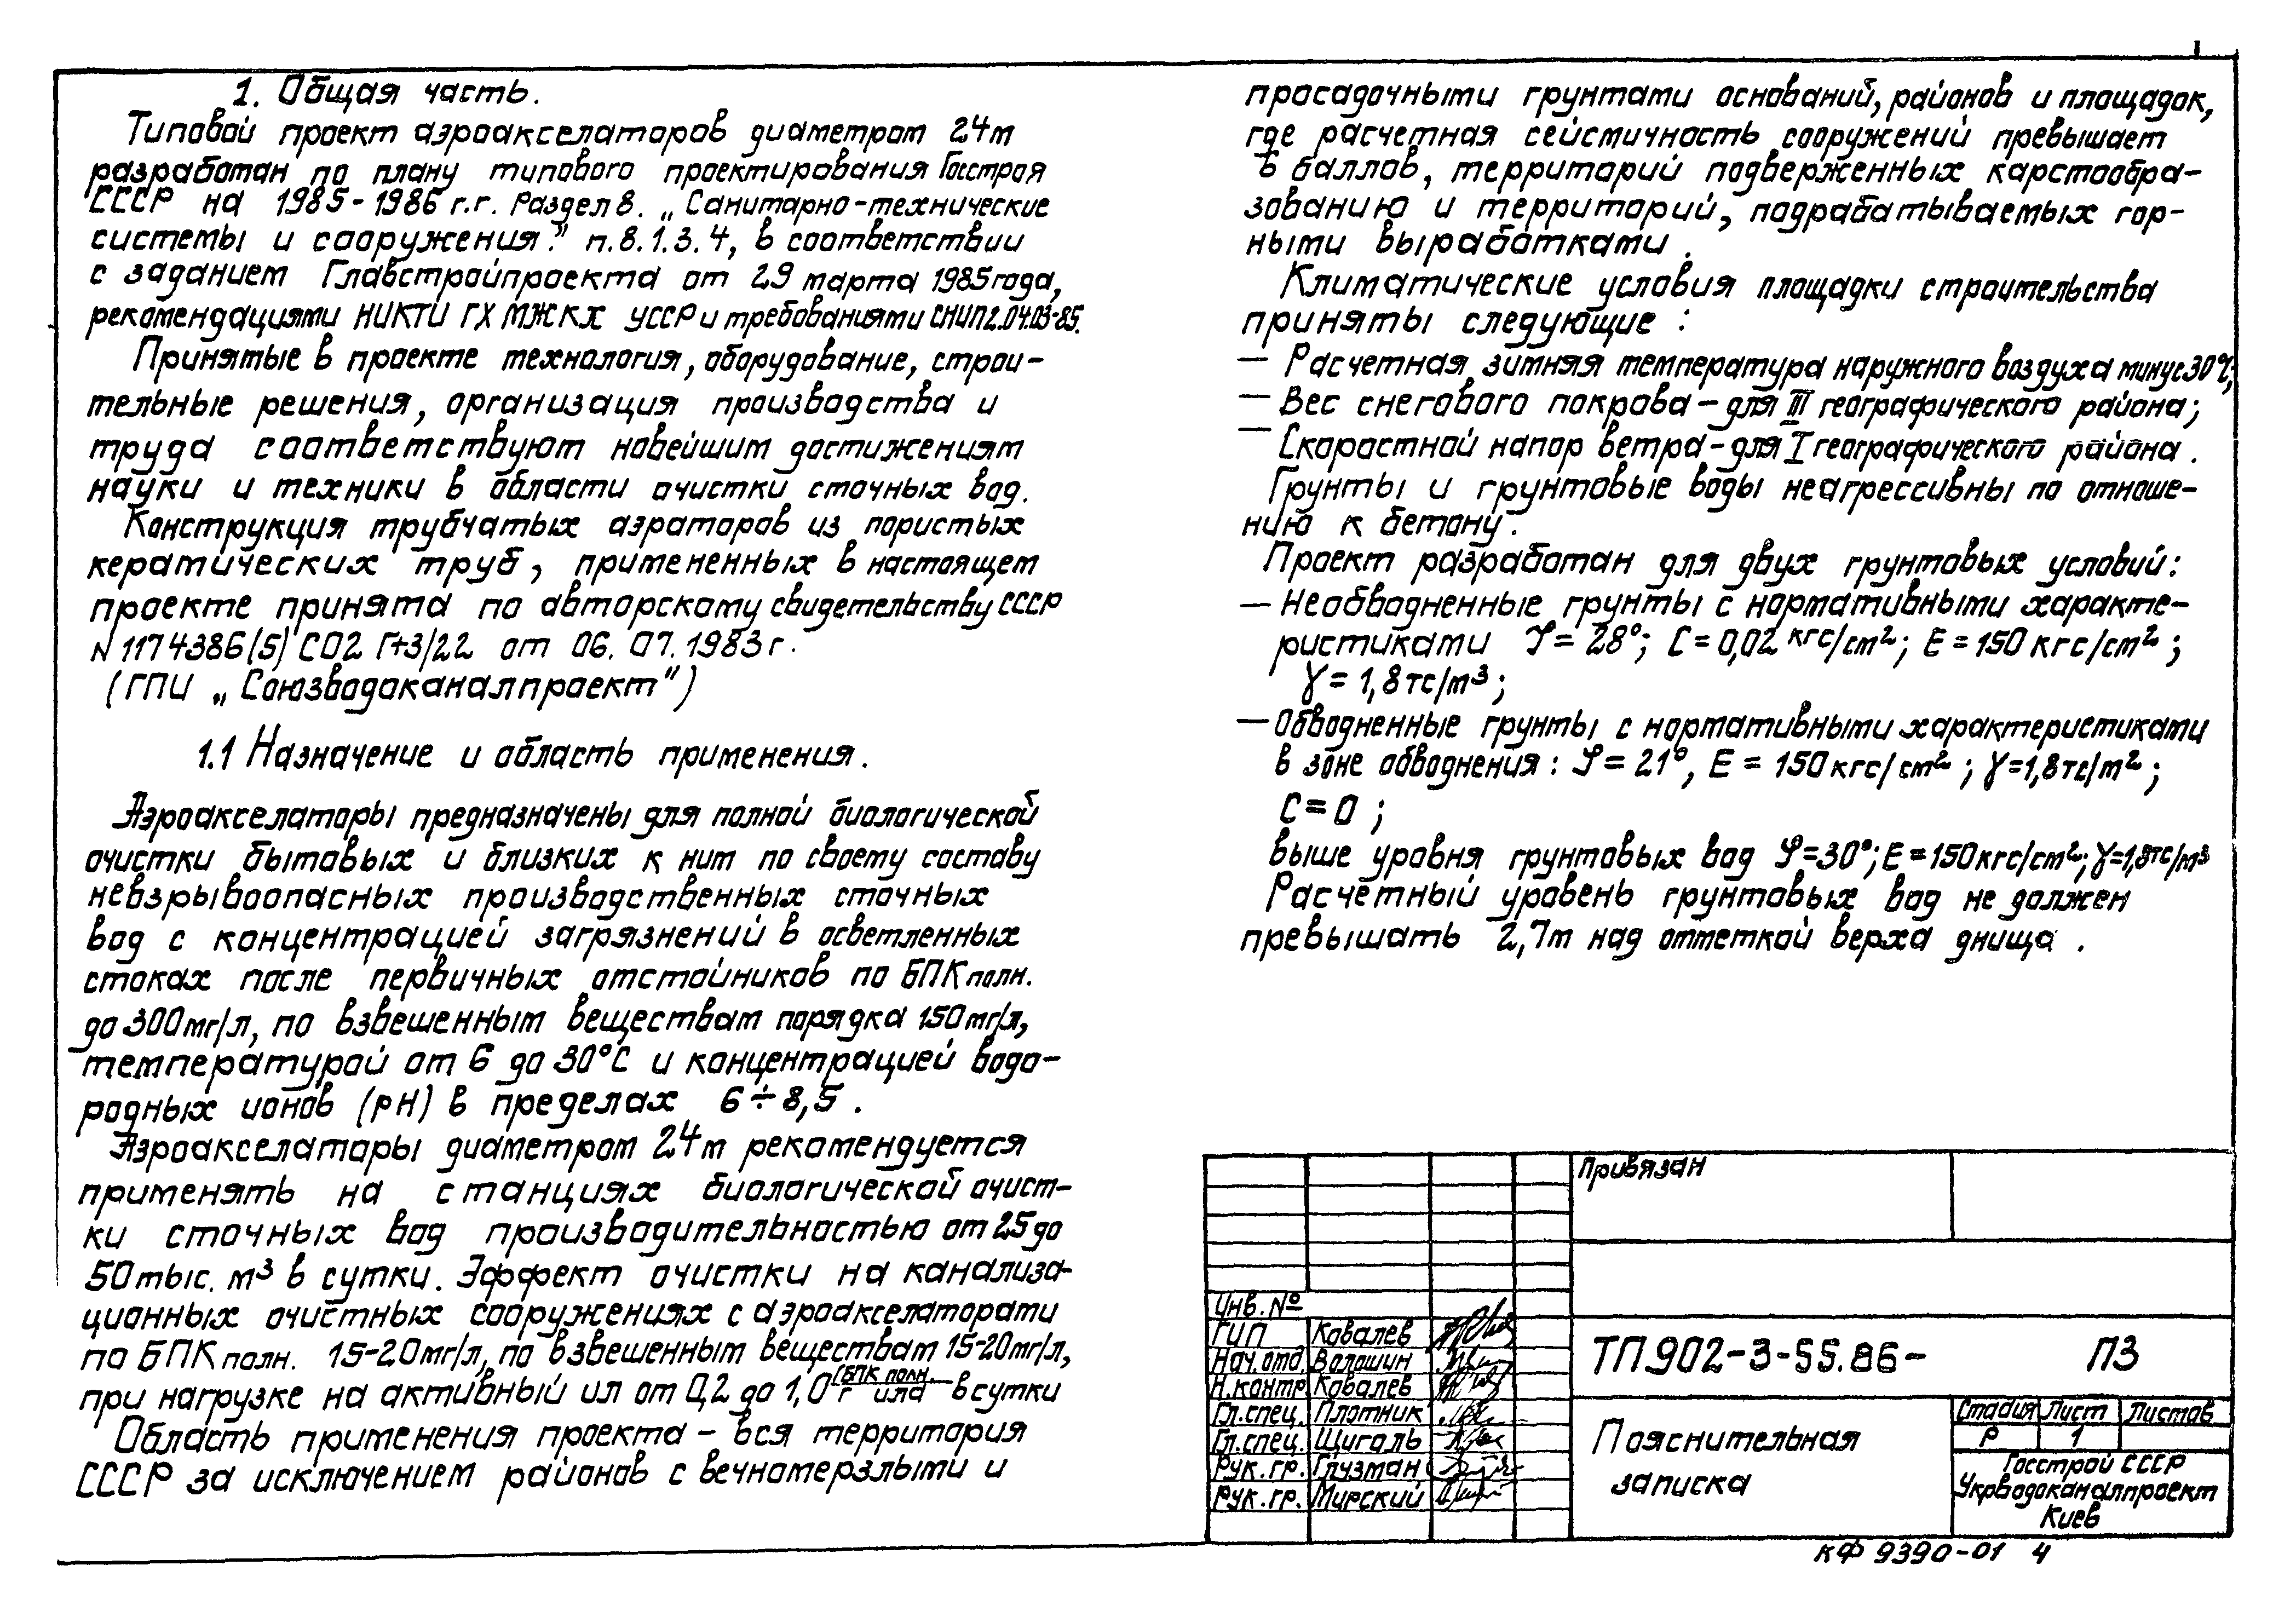 1
1. Общая часть.
Типовой проект аэроакселаторов диаметром 24м
разработан по плану типового проектирования Госстроя
СССР на 1985-1986 г.г. Раздел 8. „Санитарно-технические
системы и сооружения." п.8.1.3.4, в соответствии
с заданием Главстройпроекта от 29 марта 1985года,
рекомендациями НИКТИ ГХ МЖКХ УССР и требованиями СНИП2.04.03-85.
Принятые в проекте технология, оборудование, строи-
тельные решения, организация производства и
труда соответствуют новейшим достижениям
науки и техники в области очистки сточных вод.
Конструкция трубчатых аэраторов из пористых
керамических труб, примененных в настоящем
проекте принята по авторскому свидетельству СССР
N 1174386(5) СО2 F+3/22 от 06.07.1983 г.
(ГПИ „Союзводоканалпроект")
1.1 Назначение и область применения.
Аэроакселаторы предназначены для полной биологической
очистки бытовых и близких к ним по своему составу
невзрывоопасных производственных сточных
вод с концентрацией загрязнений в осветленных
стоках после первичных отстойников по БПК полн.
до 300мг/л, по взвешенным веществам порядка 150мг/л,
температурой от 6 до 30°С и концентрацией водо-
родных ионов (рН) в пределах 6÷8,5.
Аэроакселаторы диаметром 24м рекомендуется
применять на станциях биологической очист-
ки сточных вод производительностью от 25 до
50тыс. м³ в сутки. Эффект очистки на канализа-
ционных очистных сооружениях с аэроакселаторами
по БПК полн. 15-20мг/л, по взвешенным веществам 15-20мг/л,
при нагрузке на активный ил от 0,2 до 1,0 г БПК полн. / г ила в сутки
Область применения проекта - вся территория
СССР за исключением районов с вечномерзлыми и
просадочными грунтами оснований, районов и площадок,
где расчетная сейсмичность сооружений превышает
6 баллов, территорий подверженных карстообра-
зованию и территорий, подрабатываемых гор-
ными выработками.
Климатические условия площадки строительства
приняты следующие :
— Расчетная зимняя температура наружного воздуха минус 30°С;
— Вес снегового покрова - для III географического района;
— Скоростной напор ветра - для I географического района.
Грунты и грунтовые воды неагрессивны по отноше-
нию к бетону.
Проект разработан для двух грунтовых условий:
— Необводненные грунты с нормативными характе-
ристиками φ = 28°; С = 0,02 кгс/см²; Е = 150 кгс/см²;
γ = 1,8 тс/м³;
— Обводненные грунты с нормативными характеристиками
в зоне обводнения : φ = 21°, Е = 150 кгс/см²; γ=1,8тс/м²;
С = 0 ;
выше уровня грунтовых вод φ=30°; Е=150кгс/см²; γ=1,8тс/м³
Расчетный уровень грунтовых вод не должен
превышать 2,7м над отметкой верха днища .
Привязан
Инв. №
ГИП Ковалев
Нач.отд Волошин
Н.контр Ковалев
Гл.спец. Плотник
Гл.спец. Щиголь
Рук.гр. Глузман
Рук.гр. Мирский
ТП902-3-55.86- ПЗ
Пояснительная
записка
Стадия Лист Листов
Р 1
Госстрой СССР
Укрводоканалпроект
Киев
КФ 9390-01 4